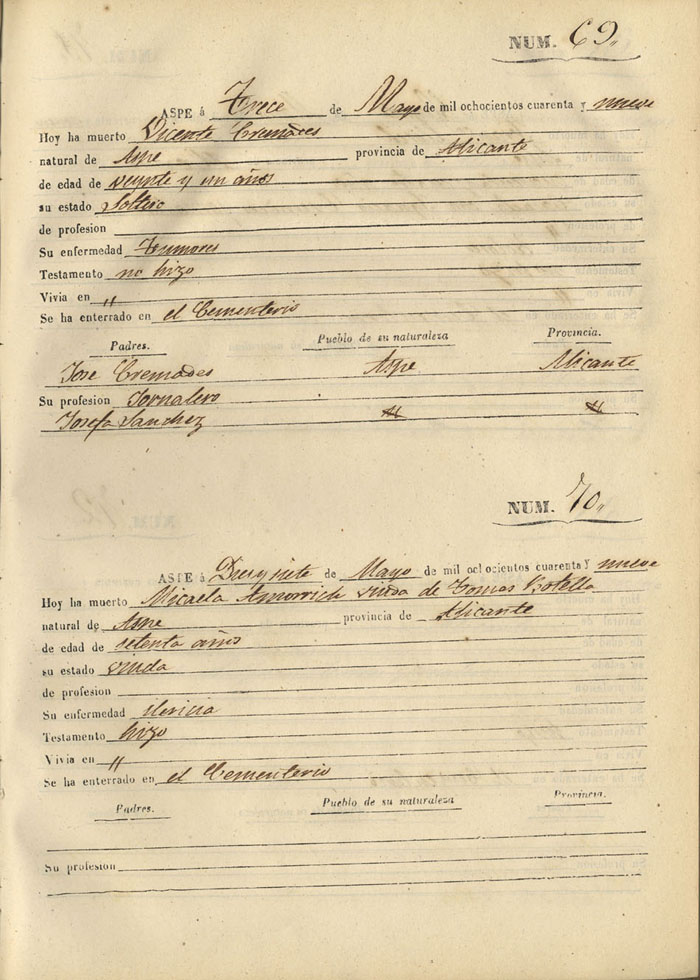 NUM. 69.
ASPE á Trece de Mayo de mil ochocientos cuarenta y nueve
Hoy ha muerto Vicente Cremades
natural de Aspe provincia de Alicante
de edad de veynte y un años
su estado Soltero
de profesion
Su enfermedad Tumores
Testamento no hizo
Vivia en "
Se ha enterrado en el Cementerio
Padres. Pueblo de su naturaleza Provincia.
Jose Cremades Aspe Alicante
Su profesion Jornalero
Josefa Sanchez " "
NUM. 70.
ASPE á Diez y siete de Mayo de mil ochocientos cuarenta y nueve
Hoy ha muerto Micaela Amorrich viuda de Tomas Botella
natural de Aspe provincia de Alicante
de edad de setenta años
su estado viuda
de profesion
Su enfermedad
Testamento hizo
Vivia en "
Se ha enterrado en el Cementerio
Padres. Pueblo de su naturaleza Provincia.
Su profesion